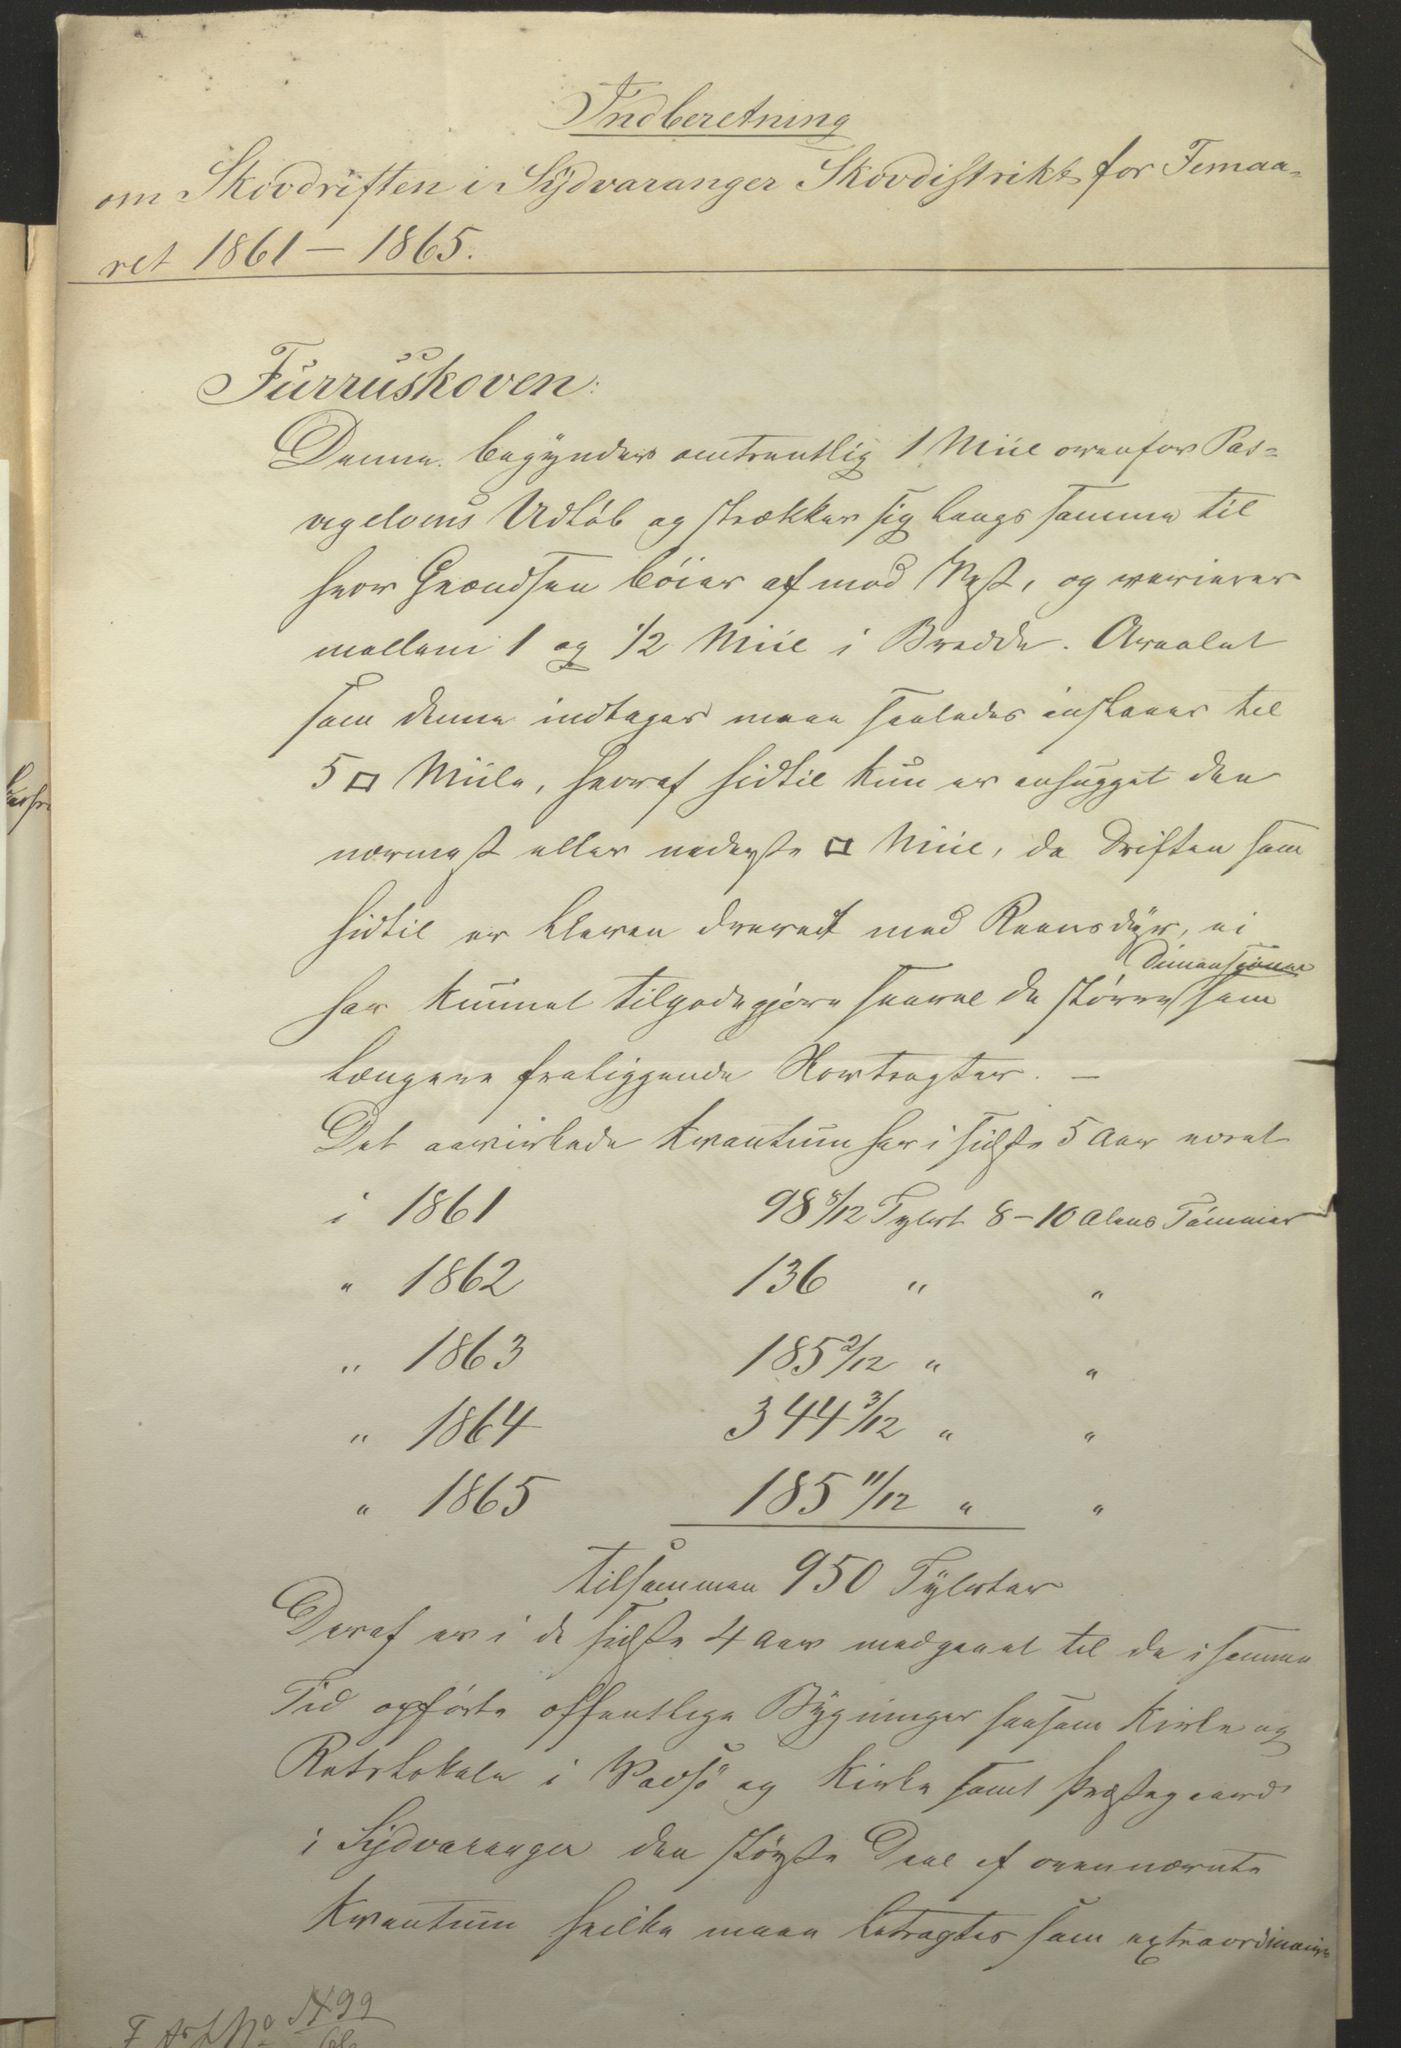 Indberetning
om Skovdriften i Sydvaranger Skovdistrikt for Femaa-
ret 1861 – 1865.
Furruskoven:
Denne begynder omtrentlig 1 Miil ovenfor Pas-
vigelvens Udløb og strækker sig langs samme til
hvor Grændsen böier af mod Vest, og varierer
mellem 1 og 1/2 Miil i Bredde. Arealet
som denne indtager maa saaledes ansLaaes til
5 □ Miile, hvoraf hidtil kun er anhugget den
nærmest eller nederste □ Miil, da Driften som
hidtil er bleven drevet med Reensdyr, ei
Dimensioner
har kunnet tilgodegjøre saavel de større som
længere fraliggende Skovtragter. –
Det avirkede Kvantum har i sidste 5 Aar været
i 1861 98 8/12 Tylvt 8–10 Alens Tömmer
" 1862 136 " "
" 1863 185 2/12 " "
" 1864 344 3/12 " "
" 1865 185 11/12 " "
tilsammen 950 Tylvter
Deraf er i de sidste 4 Aar medgaaet til de i samme
Tid opførte offentlige Bygninger saasom Kirke og
Retslokale i Vadsö og Kirke samt Præstegaard
i Sydvaranger den største Deel af ovennævnte
Kvantum hvilke maa betragtes som extraordinaire